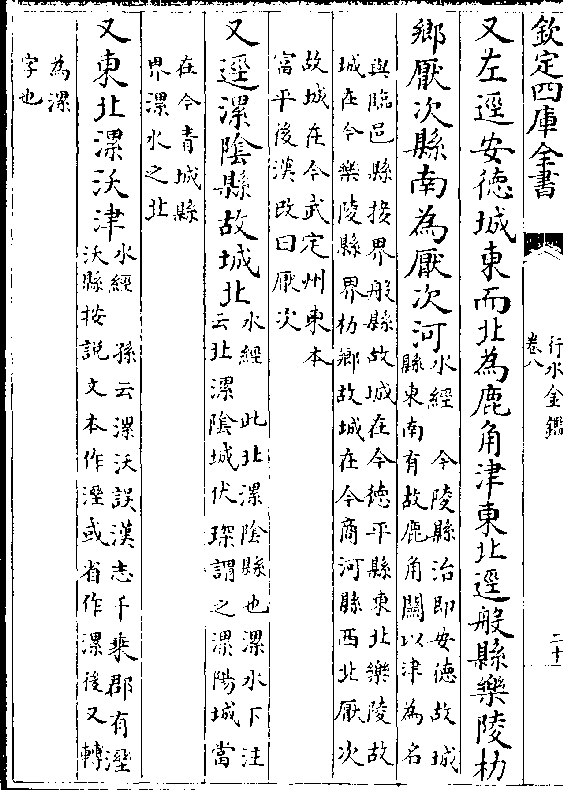 欽定四庫全書
行水金鑑
卷八
二十
又左逕安德城東而北為鹿角津東北逕般縣樂陵朸
鄉厭次縣南為厭次河
水經 今陵縣治即安德故城
縣東南有故鹿角關以津為名
與臨邑縣接界般縣故城在今德平縣東北樂陵故
城在今樂陵縣界朸鄉故城在今商河縣西北厭次
故城在今武定州東本
富平後漢改曰厭次
又逕漯陰縣故城北
水經 此北漯陰縣也漯水下注
云北漯陰城伏琛謂之漯陽城當
在今青城縣
界漯水之北
又東北漯沃津
水經 孫云漯沃誤漢志千乘郡有溼
沃縣按説文本作溼或省作漯後又轉
為漯
字也